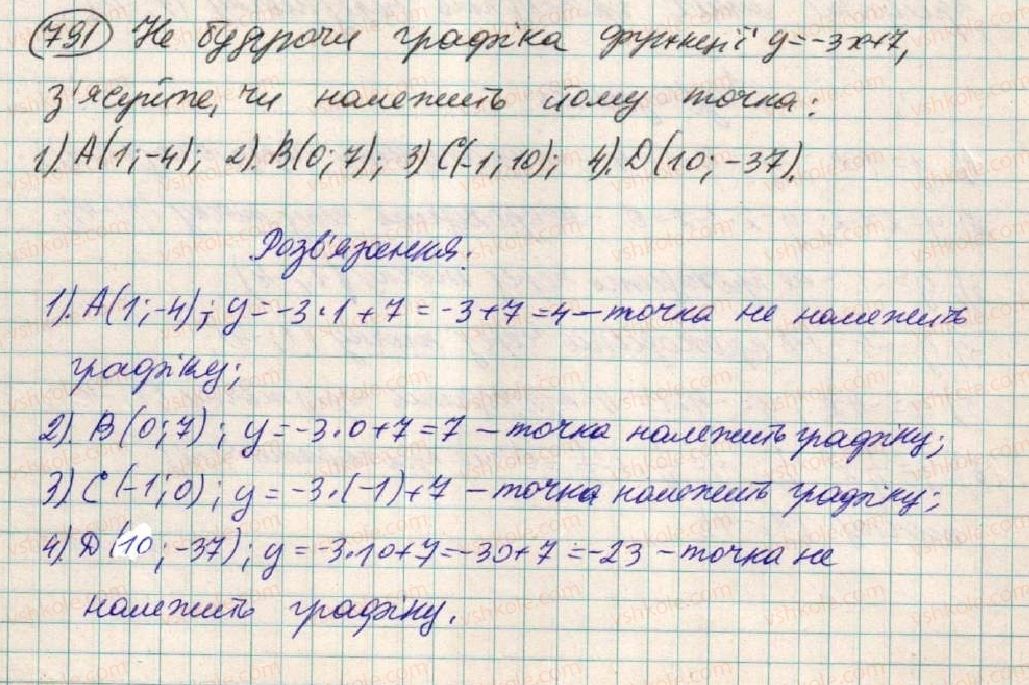 791 Не будуючи графіка функції y=-3x+7,
з'ясуйте, чи належить йому точка:
1). A(1;-4); 2). B(0;7); 3) C(-1;10); 4). D(10;-37).
Розв'язання.
1). A(1;-4); y=-3·1+7=-3+7=4 – точка не належить
графіку;
2). B(0;7); y=-3·0+7=7 – точка належить графіку;
3) C(-1;0); y=-3·(-1)+7 – точка належить графіку;
4). D(10;-37); y=-3·10+7=-30+7=-23 – точка не
належить графіку.